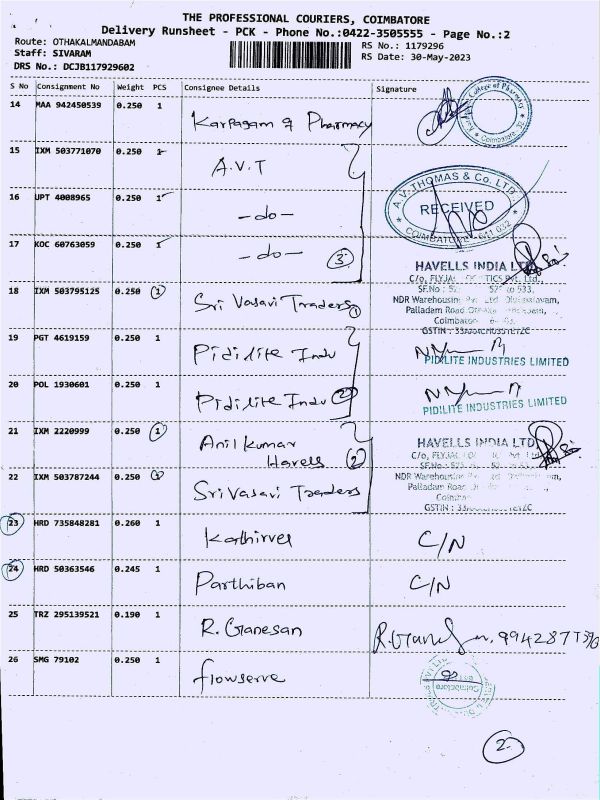 THE PROFESSIONAL COURIERS, COIMBATORE
Delivery Runsheet - PCK - Phone No.:0422-3505555 - Page No.:2
Route: OTHAKALMANDABAM
RS No.: 1179296
Staff: SIVARAM
RS Date: 30-May-2023
DRS No.: DCJB117929602
S No Consignment No Weight PCS Consignee Details Signature
14 MAA 942450539 0.250 1 Karpagam of Pharmacy
College of Pharmacy Coimbatore
15 IXM 503771070 0.250 1 A.V.T
A.V. THOMAS & Co. LTD.
16 UPT 4008965 0.250 1 -do-
RECEIVED
COIMBATORE
17 KOC 60763059 0.250 -do- 3
HAVELLS INDIA LTD
18 IXM 503795125 0.250 1 Sri Vasavi Traders 1
NDR Warehousing
Palladam Road
GSTIN :
19 PGT 4619159 0.250 1 Pidilite Indu
PIDILITE INDUSTRIES LIMITED
20 POL 1930601 0.250 1 Pidilite Indu 2
PIDILITE INDUSTRIES LIMITED
21 IXM 2220999 0.250 1 Anil kumar
Havells 2
HAVELLS INDIA LTD
22 IXM 503787244 0.250 Sri Vasavi Traders
NDR Warehousing
Palladam Road
GSTIN :
23 HRD 735848281 0.260 1 Kathirvel C/N
24 HRD 50363546 0.245 1 Parthiban C/N
25 TRZ 295139521 0.190 1 R. Ganesan
26 SMG 79102 0.250 1 flowserve
Coimbatore
2